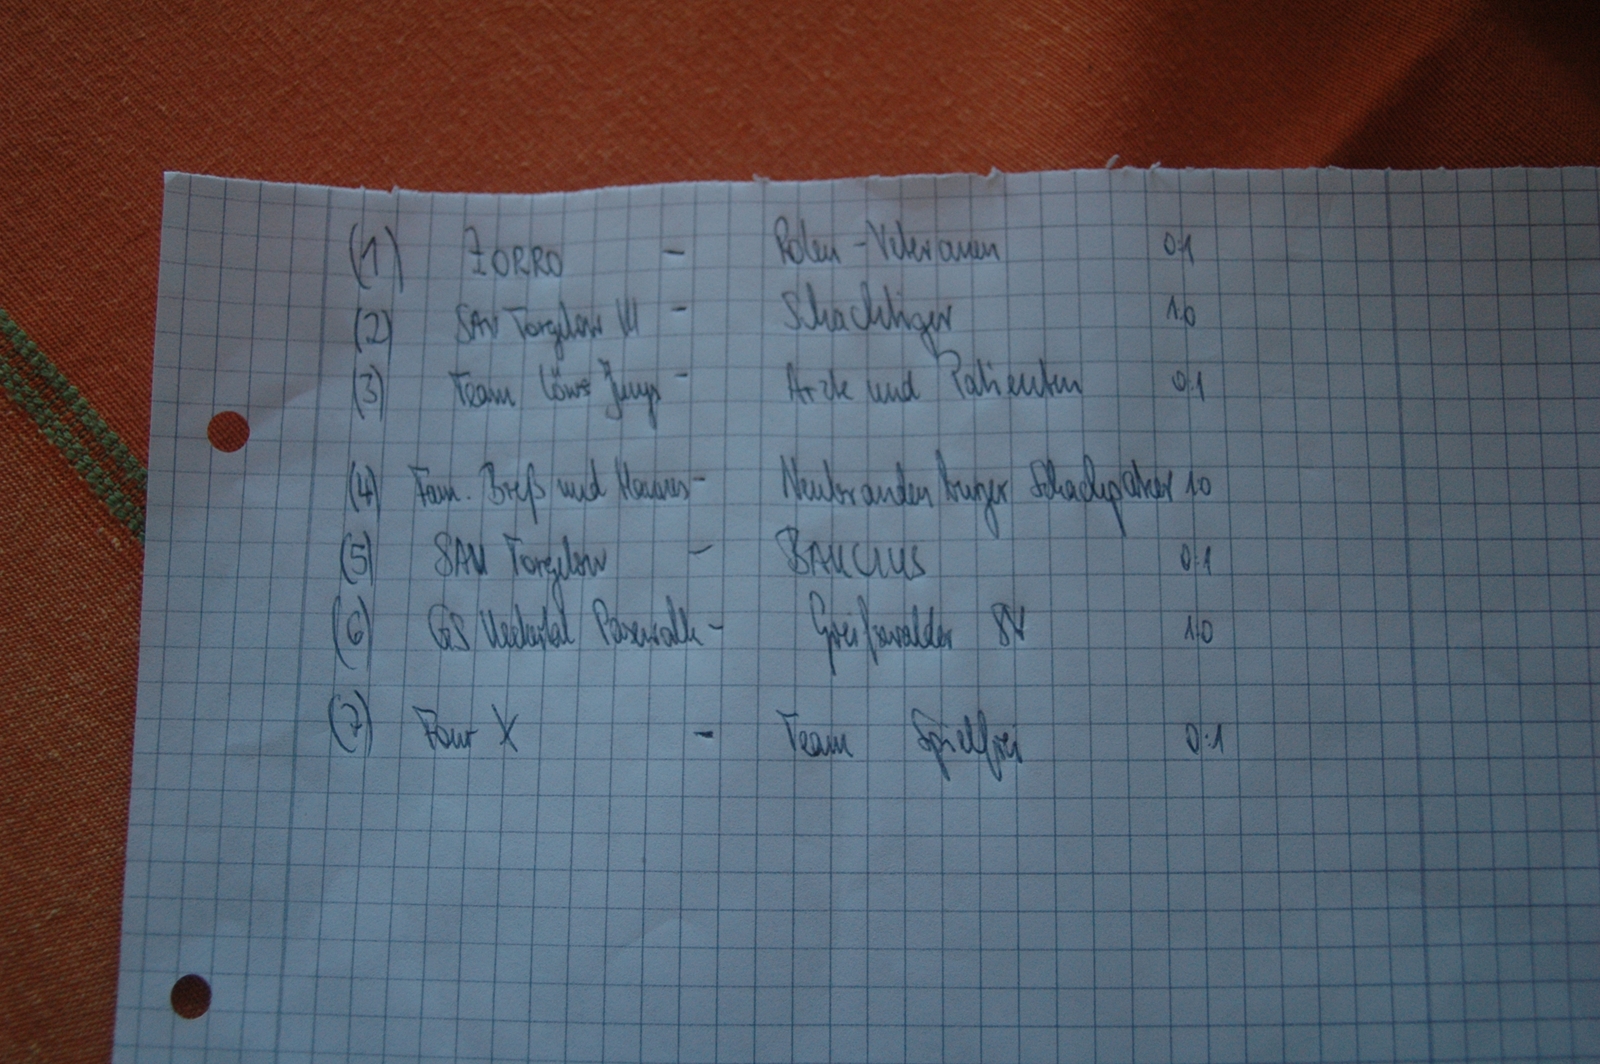 (1) ZORRO - Polen-Veteranen 0:1
(2) SAV Torgelow III - Schachtiger 1:0
(3) Team Löws Jungs - Ärzte und Patienten 0:1
(4) Fam. Breß und - Neubrandenburger 1:0
(5) SAV Torgelow - 0:1
(6) GS Ueckertal Pasewalk - Greifswalder SV 1:0
(7) Four X - Team Spielfrei 0:1